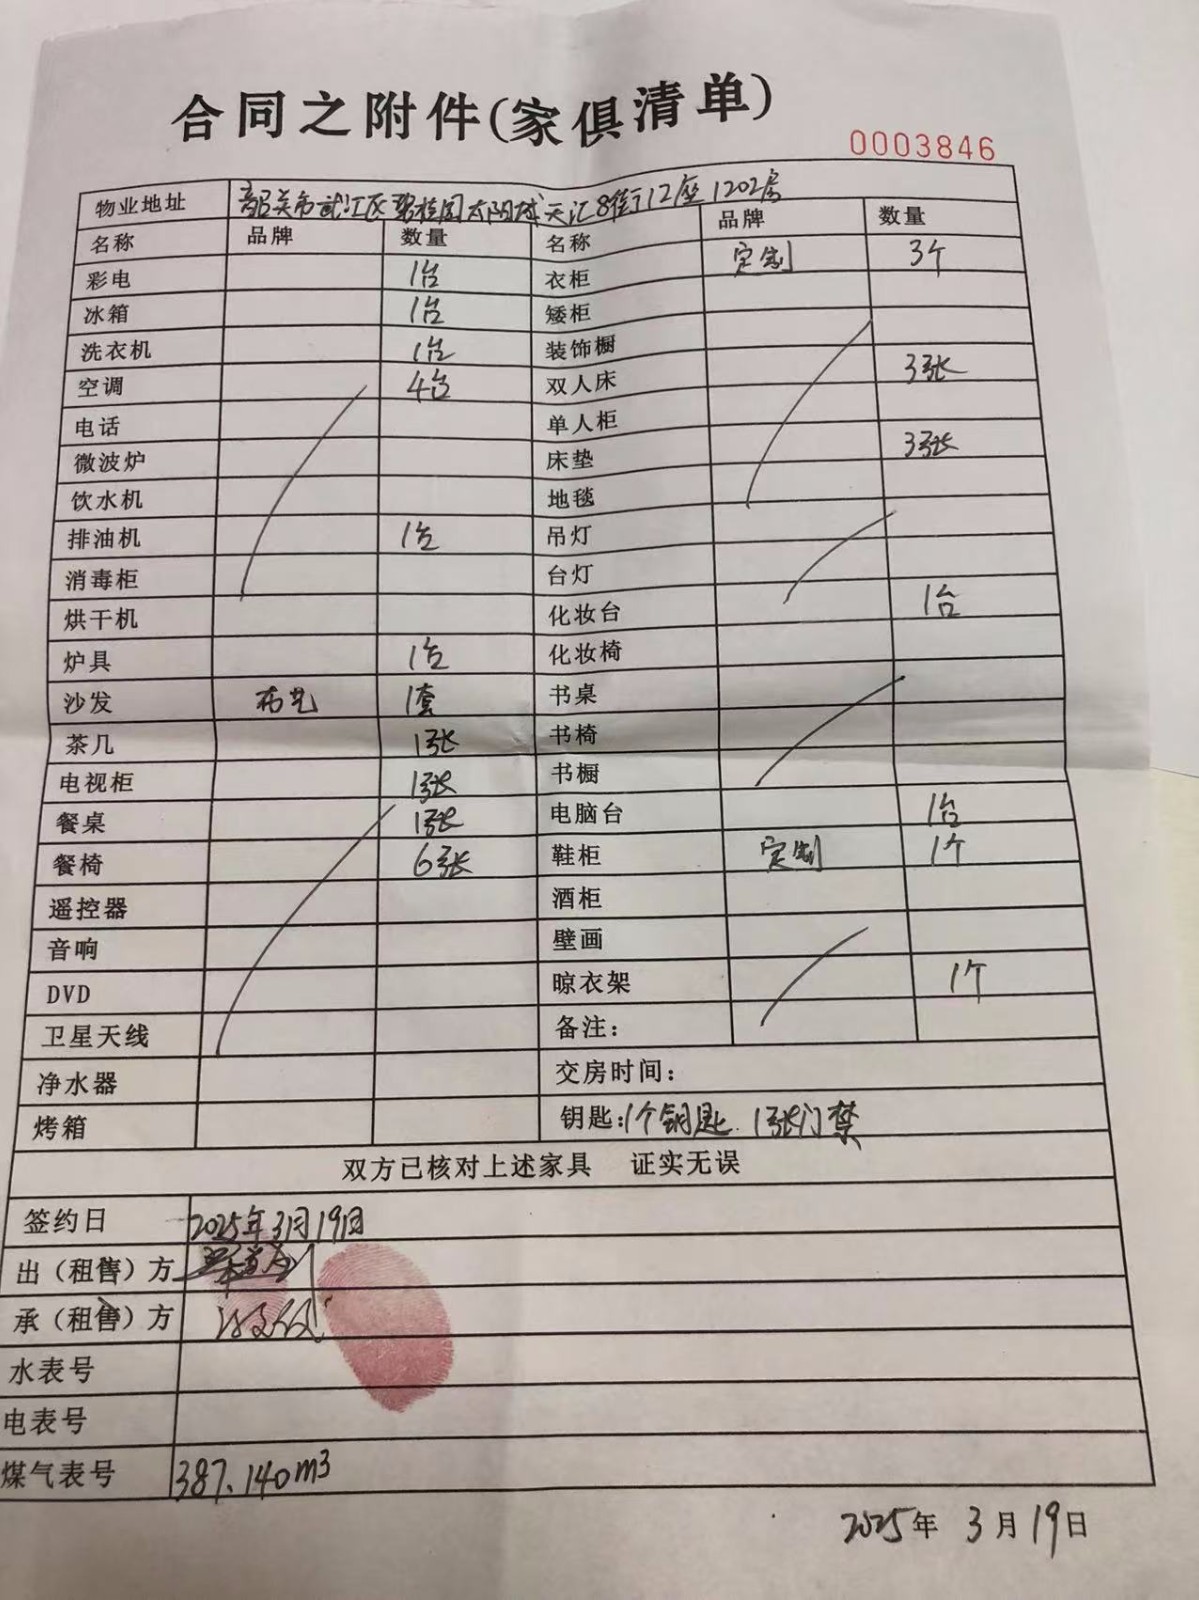 合同之附件(家俱清单)
0003846
物业地址 韶关市武江区碧桂园太阳城天汇8街12座1202房
名称 品牌 数量 名称 品牌 数量
彩电 1台 衣柜 定制 3个
冰箱 1台 矮柜
洗衣机 1台 装饰橱
空调 4台 双人床 3张
电话 单人柜
微波炉 床垫 3张
饮水机 地毯
排油机 1台 吊灯
消毒柜 台灯
烘干机 化妆台 1台
炉具 1台 化妆椅
沙发 布艺 1套 书桌
茶几 1张 书椅
电视柜 1张 书橱
餐桌 1张 电脑台 1台
餐椅 6张 鞋柜 定制 1个
遥控器 酒柜
音响 壁画
DVD 晾衣架 1个
卫星天线 备注:
净水器 交房时间:
烤箱 钥匙:1个钥匙. 1张门禁
双方已核对上述家具 证实无误
签约日 2025年3月19日
出（租售）方
承（租售）方
水表号
电表号
煤气表号 387.140m3
2025年 3月19日